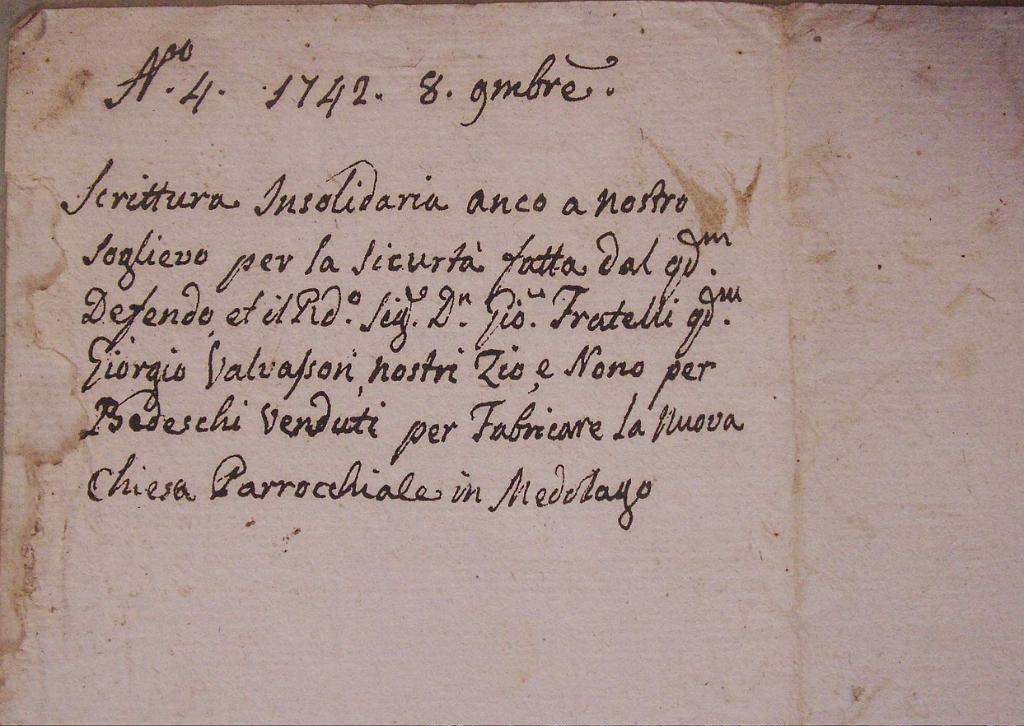 N.ro 4. 1742. 8. 9mbre.
Scrittura Insolidaria anco a nostro
soglievo per la sicurtà fatta dal qdm.
Defendo, et il Rdo. Sigr. Dn. Gio. Fratelli qdm.
Giorgio Valvassori, nostri Zio, e Nono per
Bedeschi venduti per Fabricare la Nuova
Chiesa Parrocchiale in Medolago